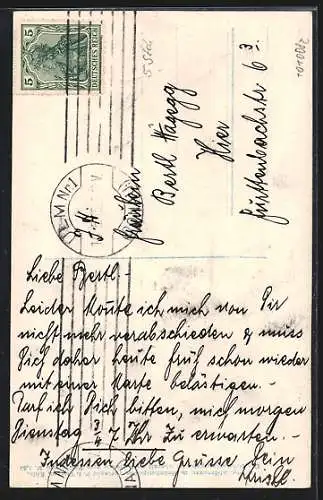 5
DEUTSCHES REICH
5
ULM Nr 1
Fräulein
Bertl Hägegg
Hier
Furttenbachstr 6 3.
Liebe Bertl. –
Leider konnte ich mich von Dir
nicht mehr verabschieden & muss
Dich daher heute früh schon wieder
mit einer Karte belästigen. –
Darf ich Dich bitten, mich morgen
Dienstag 3/4 7 Uhr zu erwarten. –
Indessen liebe Grüsse Dein